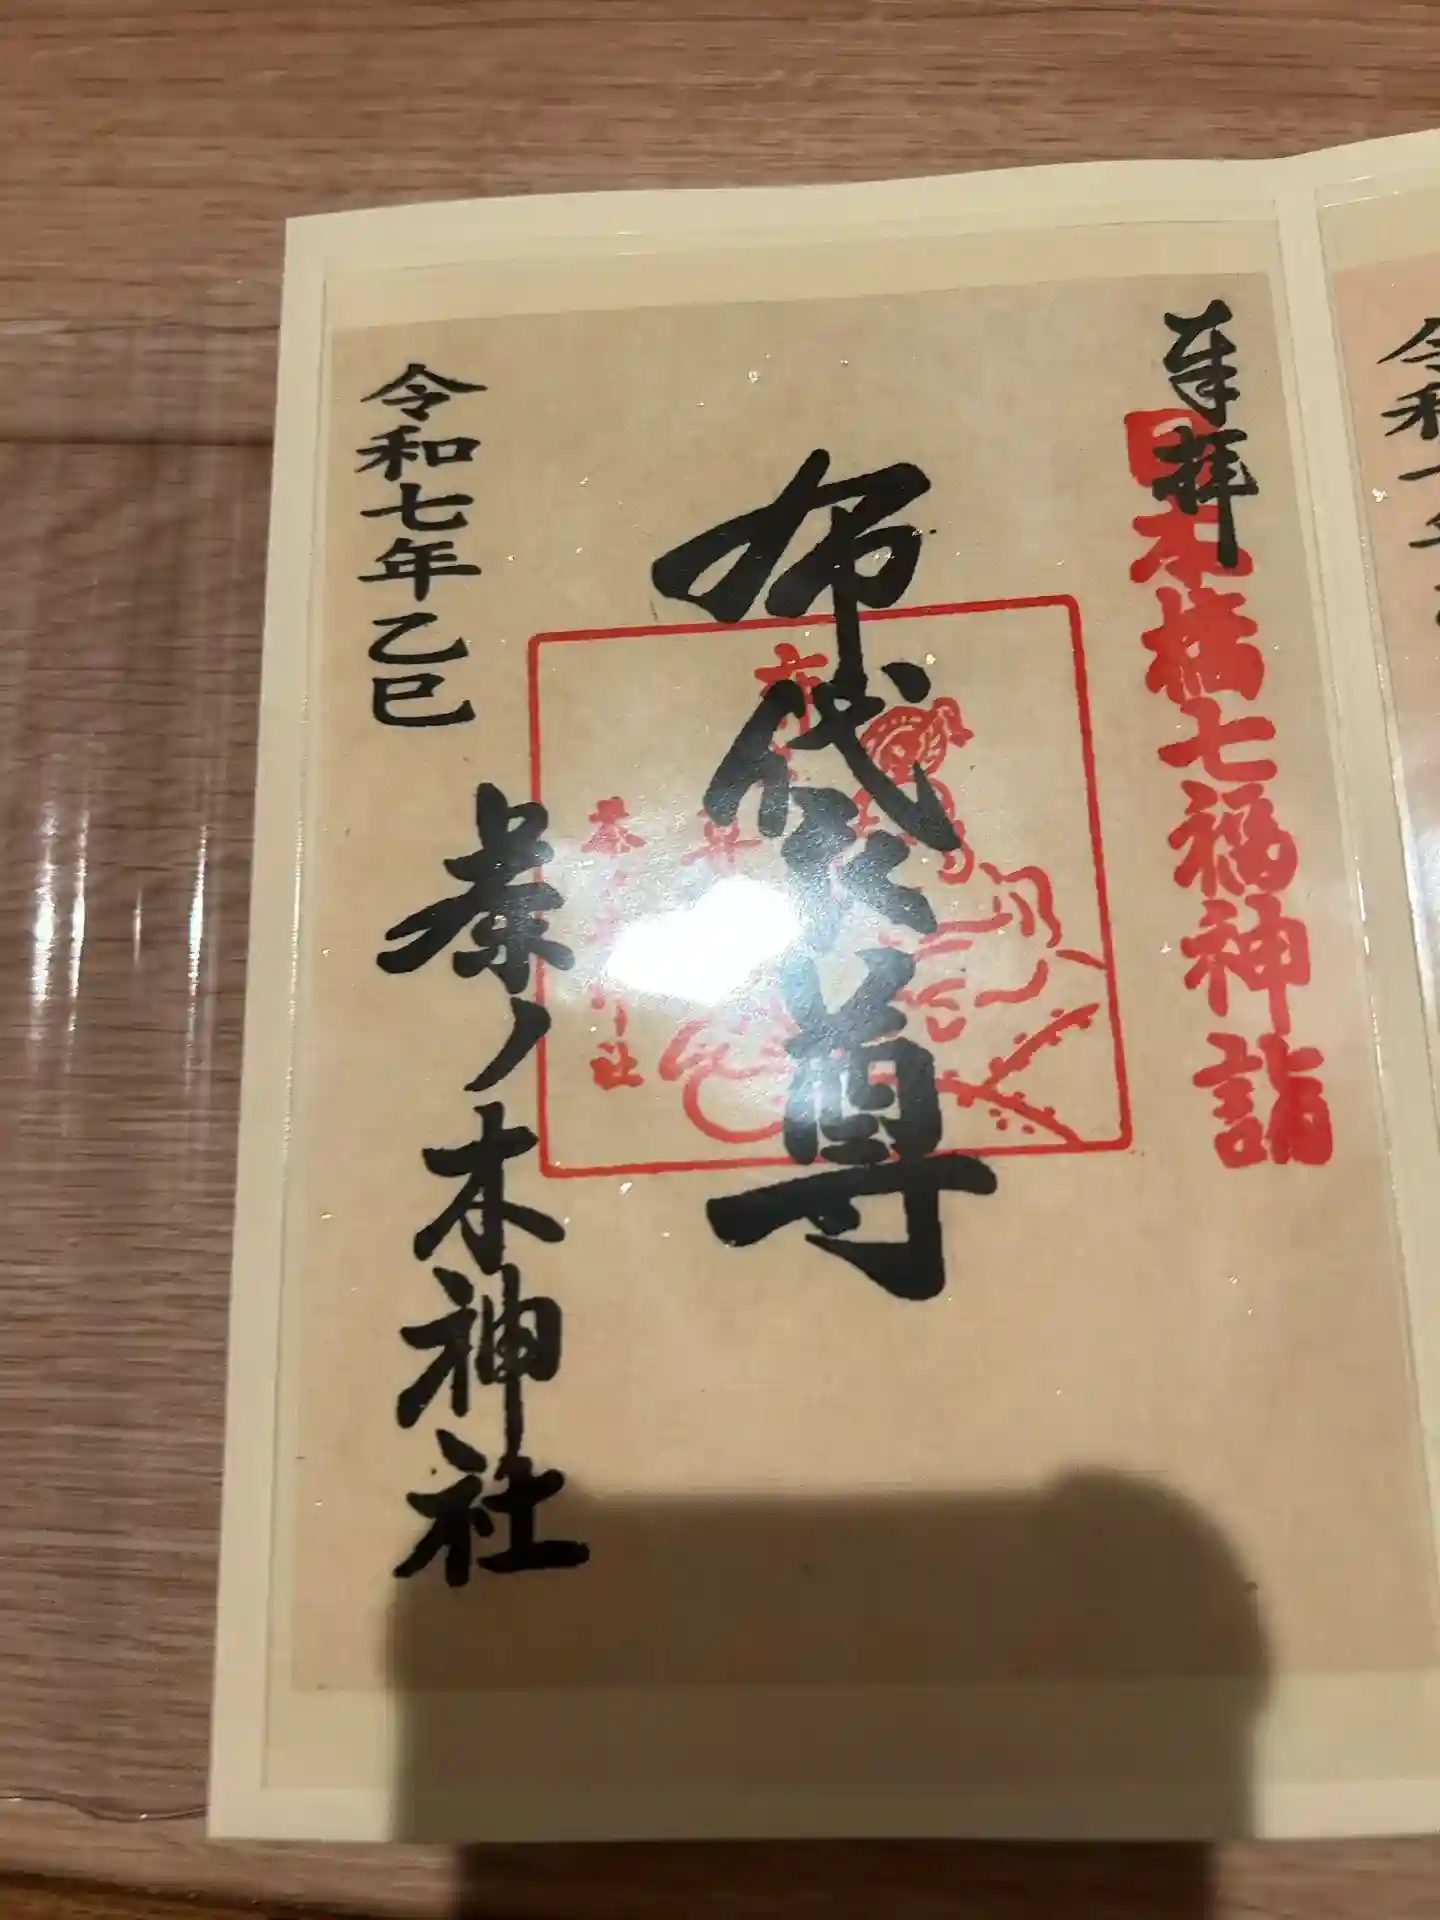 奉拝
日本橋七福神詣
布袋尊
茶ノ木神社
令和七年乙巳